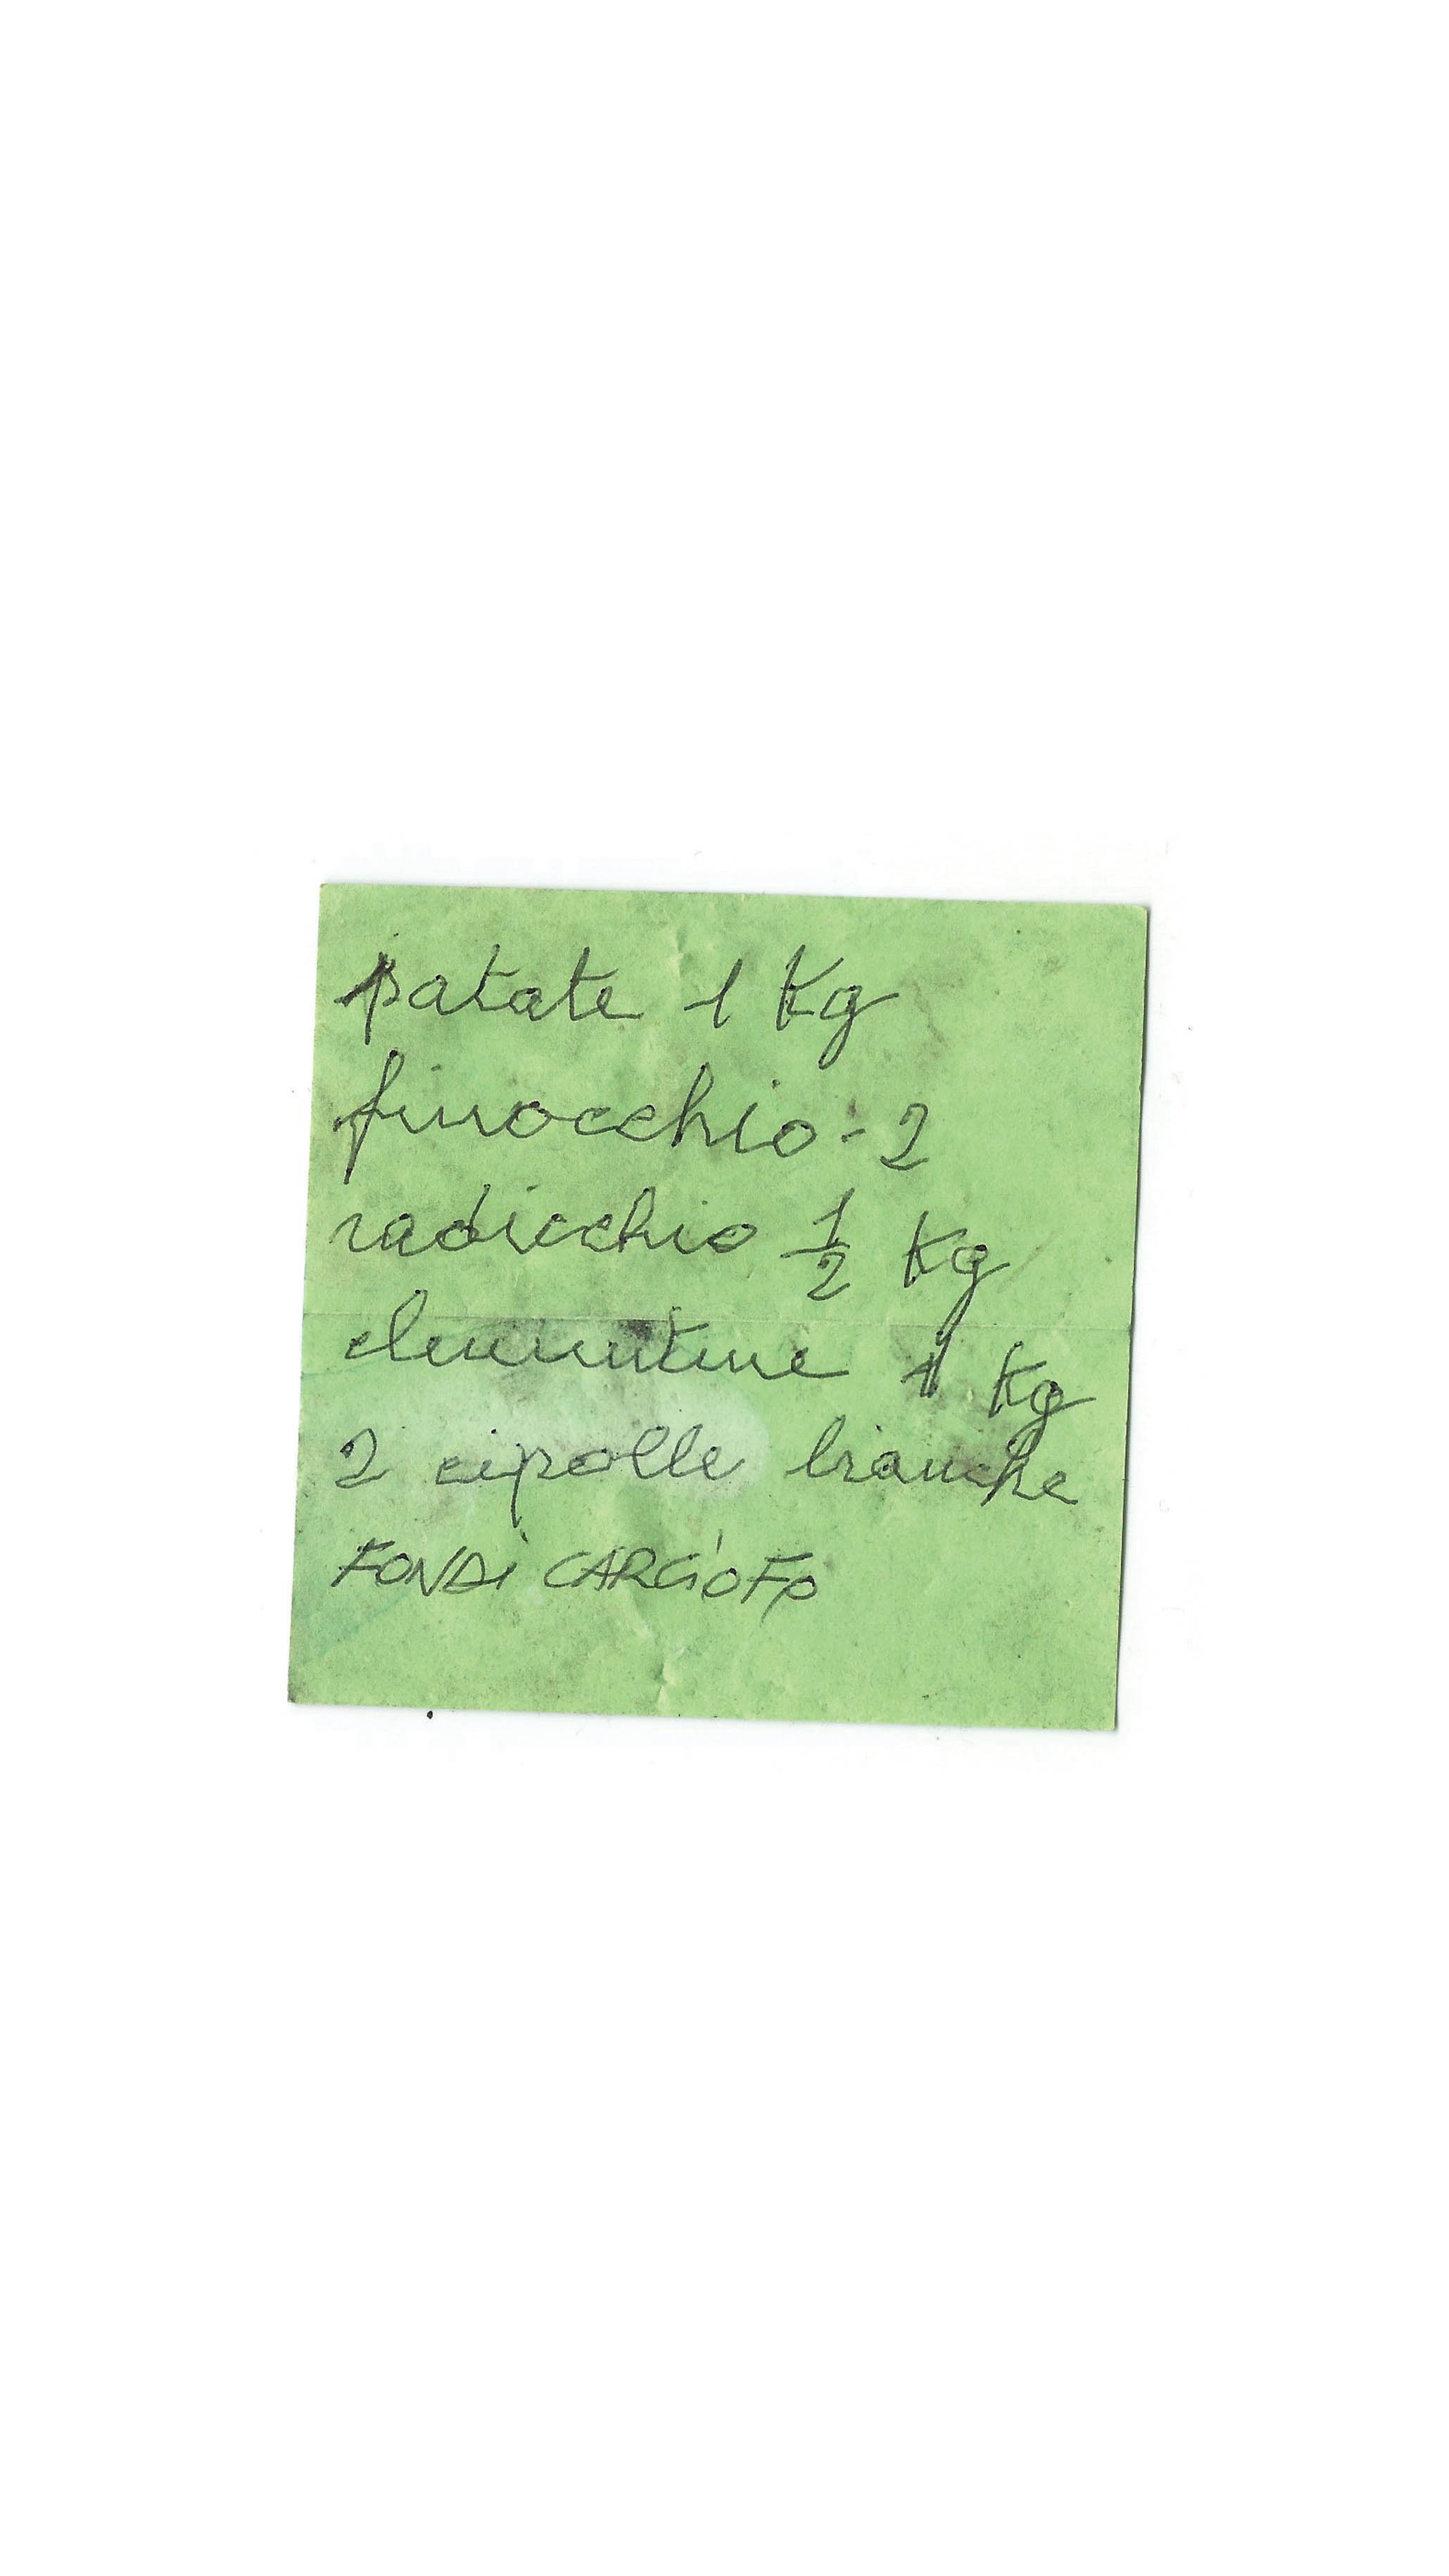 patate 1 Kg
finocchio - 2
radicchio 1/2 Kg
clementine 1 Kg
2 cipolle bianche
FONDI CARCIOFO